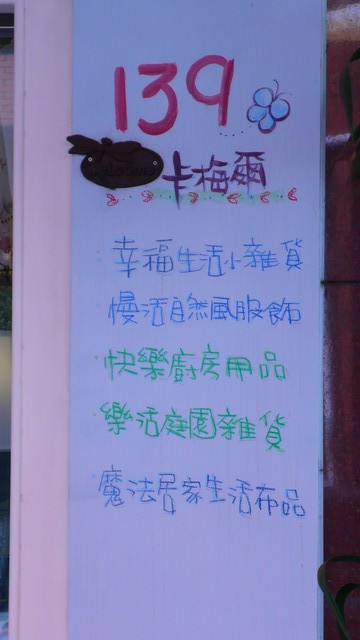 139
卡梅爾
幸福生活小雜貨
慢活自然風服飾
快樂廚房用品
樂活庭園雜貨
魔法居家生活布品